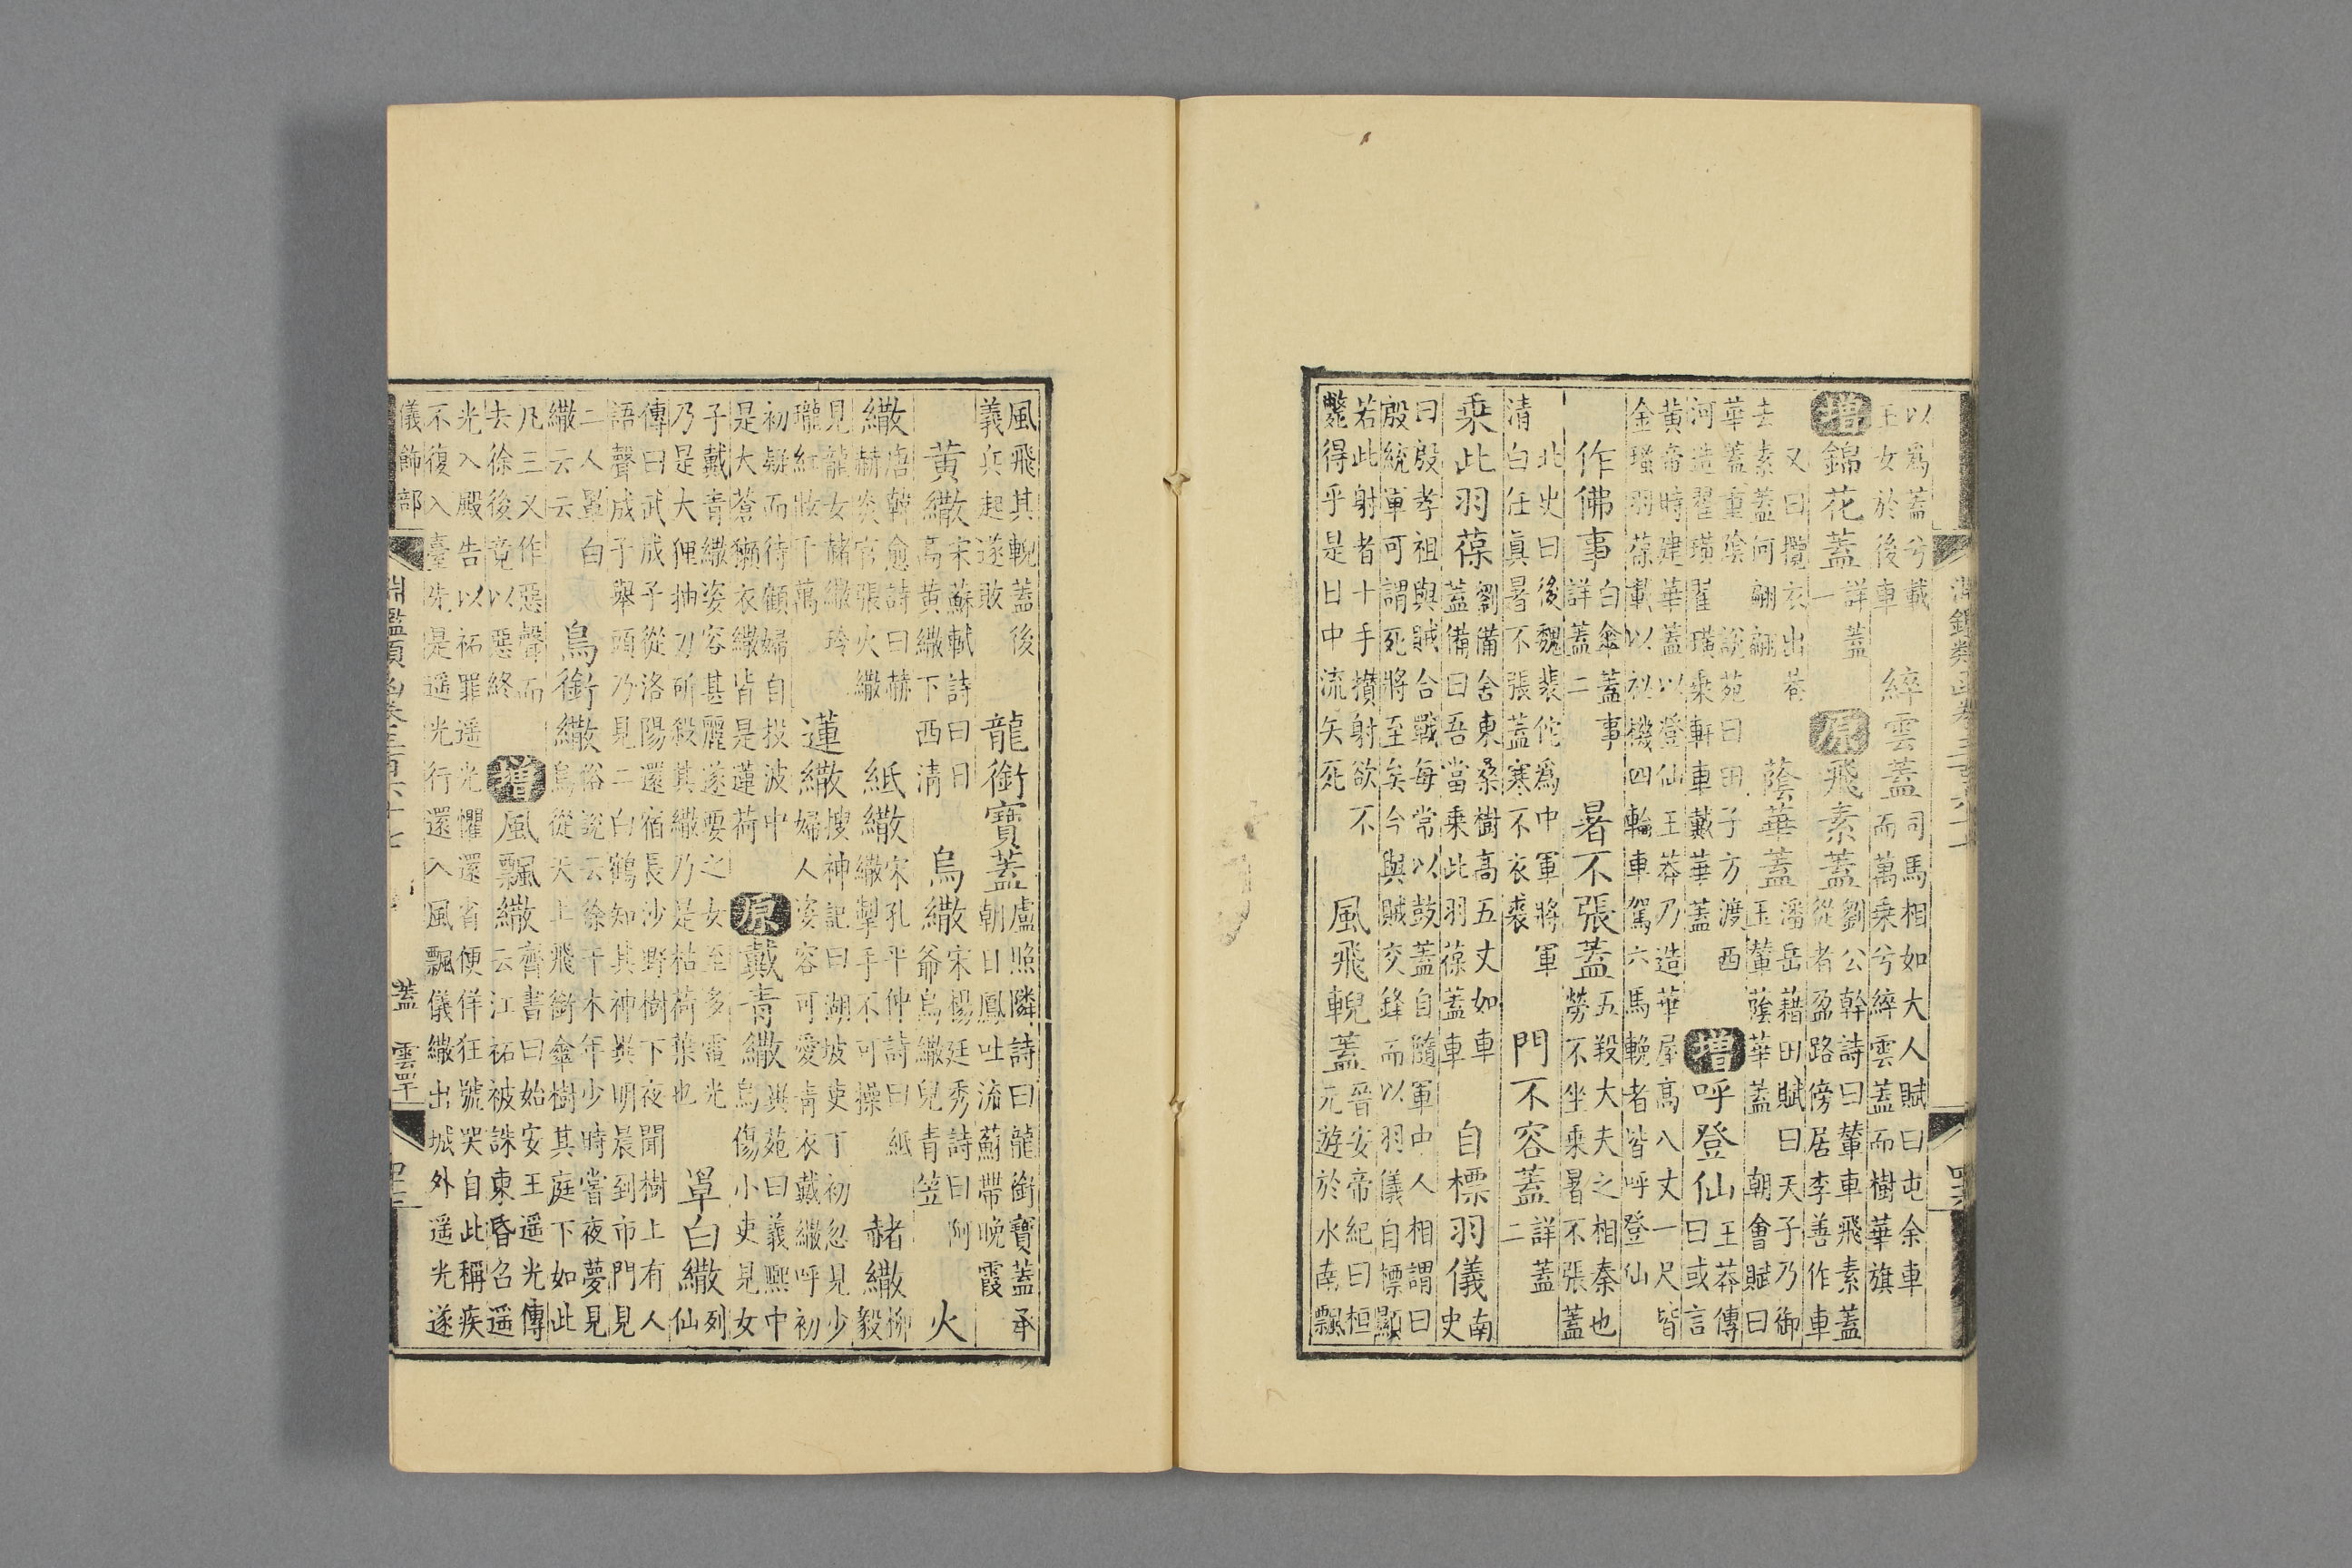 以為蓋兮載
王女於後車
綷雲蓋
司馬相如大人賦曰屯余車
而萬乘兮綷雲蓋而樹華旗
增錦花蓋
詳蓋
一
原飛素蓋
劉公幹詩曰輦車飛素蓋
從者盈路傍居李善作車
又曰攬衣出巷
去素蓋何翩翩
蔭華蓋
潘岳藉田賦曰天子乃御
玉輦蔭華蓋 朝會賦曰
華蓋重陰 說苑曰田子方渡西
河造翟璜翟璜乗軒車戴華蓋
增呼登仙
王莽傳
曰或言
黃帝時建華蓋以登仙王莽乃造華屋高八丈一尺皆
金瑵羽葆載以祕機四輪車駕六馬輓者皆呼登仙
作佛事
白傘蓋事
詳蓋二
暑不張蓋
五羖大夫之相秦也
勞不坐乗暑不張蓋
北史曰後魏裴佗為中軍將軍
清白任真暑不張蓋寒不衣裘
門不容蓋
詳蓋
二
乗此羽葆
劉備舍東桑樹高五丈如車
蓋備曰吾當乗此羽葆蓋車
自標羽儀
南
史
曰殷孝祖與賊合戰每常以鼓蓋自隨軍中人相謂曰
殷統軍可謂死將至矣今與賊交鋒而以羽儀自標顯
若此射者十手攢射欲不
斃得乎是日中流矢死
風飛輗蓋
晉安帝紀曰桓
元遊於水南飄
風飛其輗蓋後
義兵起遂敗
龍銜寶蓋
盧照隣詩曰龍銜寶蓋承
朝日鳳吐流蘇帶晚霞
黃繖
宋蘇軾詩曰日
高黃繖下西清
烏繖
宋楊廷秀詩曰阿
爺烏繖兒青笠
火
繖
唐韓愈詩曰赫
赫炎官張火繖
紙繖
宋孔平仲詩曰紙
繖掣手不可操
赭繖
柳
毅
見龍女赭繖玲
瓏紅妝千萬
蓮繖
搜神記曰湖坡吏丁初忽見少
婦人姿容可愛青衣戴繖呼初
初疑而待顧婦自投波中
是大蒼獺衣繖皆是蓮荷
原戴青繖
異苑曰義熙中
烏傷小吏見女
子戴青繖姿容甚麗遂要之女至多電光
乃是大狸抽刀斫殺其繖乃是枯荷葉也
單白繖
列
仙
傳曰武成子從洛陽還宿長沙野樹下夜聞樹上有人
語聲成子舉頭乃見二白鶴知其神異明晨到市門見
二人罩白
繖云云
烏銜繖
俗說云徐干木年少時嘗夜夢見
烏從天上飛銜傘樹其庭下如此
凡三又作惡聲而
去徐後竟以惡終
增風飄繖
齊書曰始安王遥光傳
云江祏被誅東昏召遥
光入殿告以祏罪遥光懼還省便佯狂號哭自此稱疾
不復入臺先是遥光行還入風飄儀繖出城外遥光遂
儀飾部
淵鑑類函卷三百六十七
蓋
雲罕